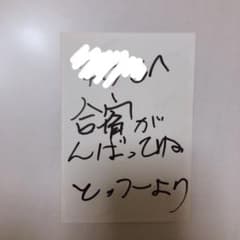 へ
合宿が
んばってね
とっつーより